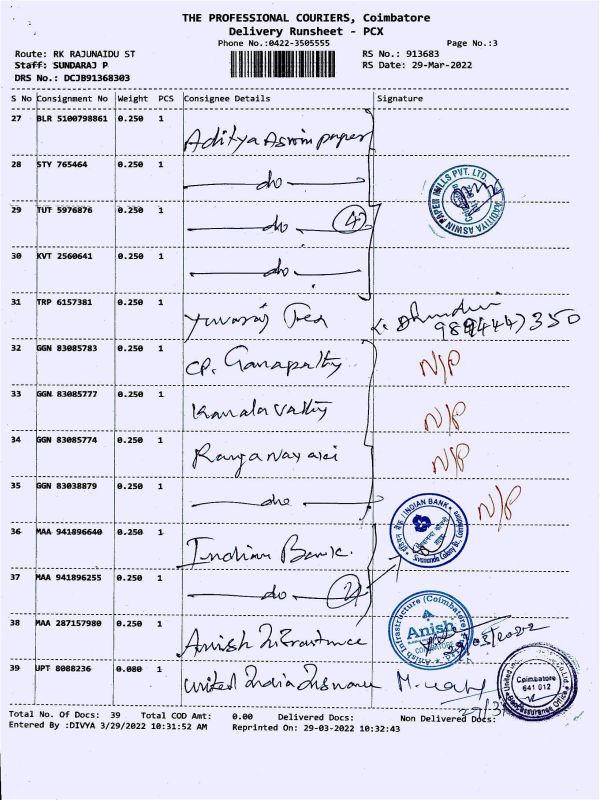 THE PROFESSIONAL COURIERS, Coimbatore
Delivery Runsheet - PCX
Phone No.:0422-3505555 Page No.:3
Route: RK RAJUNAIDU ST RS No.: 913683
Staff: SUNDARAJ P RS Date: 29-Mar-2022
DRS No.: DCJB91368303
S No Consignment No Weight PCS Consignee Details Signature
27 BLR 5100798861 0.250 1 Aditya Aswin paper
28 STY 765464 0.250 1 do
29 TUT 5976876 0.250 1 do 4
30 KVT 2560641 0.250 1 do
31 TRP 6157381 0.250 1
32 GGN 83085783 0.250 1 CP. Ganapathy N/P
33 GGN 83085777 0.250 1 N/P
34 GGN 83085774 0.250 1 N/P
35 GGN 83038879 0.250 1 do N/P
36 MAA 941896640 0.250 1 Indian Bank
INDIAN BANK
37 MAA 941896255 0.250 1 do 2
38 MAA 287157980 0.250 1 Anish
Anish Infrastructure (Coimbatore)
Anish
COIMBATORE
39 UPT 8088236 0.080 1 United India Insurance
Coimbatore
641 012
Total No. Of Docs: 39 Total COD Amt: 0.00 Delivered Docs: Non Delivered Docs:
Entered By :DIVYA 3/29/2022 10:31:52 AM Reprinted On: 29-03-2022 10:32:43